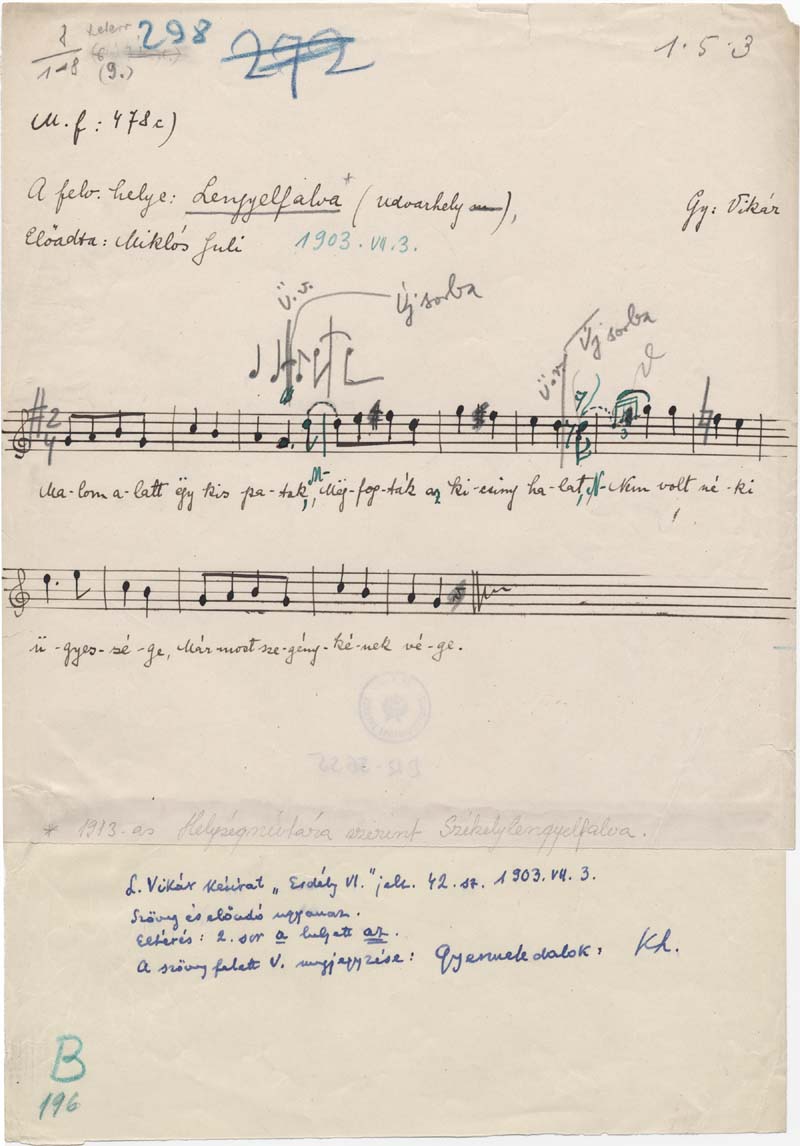 298
272
1·5·3
1-8
(9.)
M. f: 478c)
A felv. helye: Lengyelfalva* (Udvarhely m),
Gy: Vikár
Előadta: Miklós Juli 1903. VII. 3.
Ü.v. Új sorba
Ü.v. Új sorba
2
4
7
7
3
vl
Ma-lom a-latt ëgy kis pa-tak, M- Mëg-fog-ták az ki-csiny ha-lat, N- Nem volt né-ki
ü-gyes-sé-ge, Már-most sze-gény-ké-nek vé-ge.
* 1913-as Helységnévtára szerint Székelylengyelfalva.
L. Vikár kézirat „Erdély VI." jelz. 42. sz. 1903. VII. 3.
Szöveg és előadó ugyanaz.
Eltérés: 2. sor a helyett az.
A szöveg felett V. megjegyzése: Gyermekdalok. Kh.
B
196